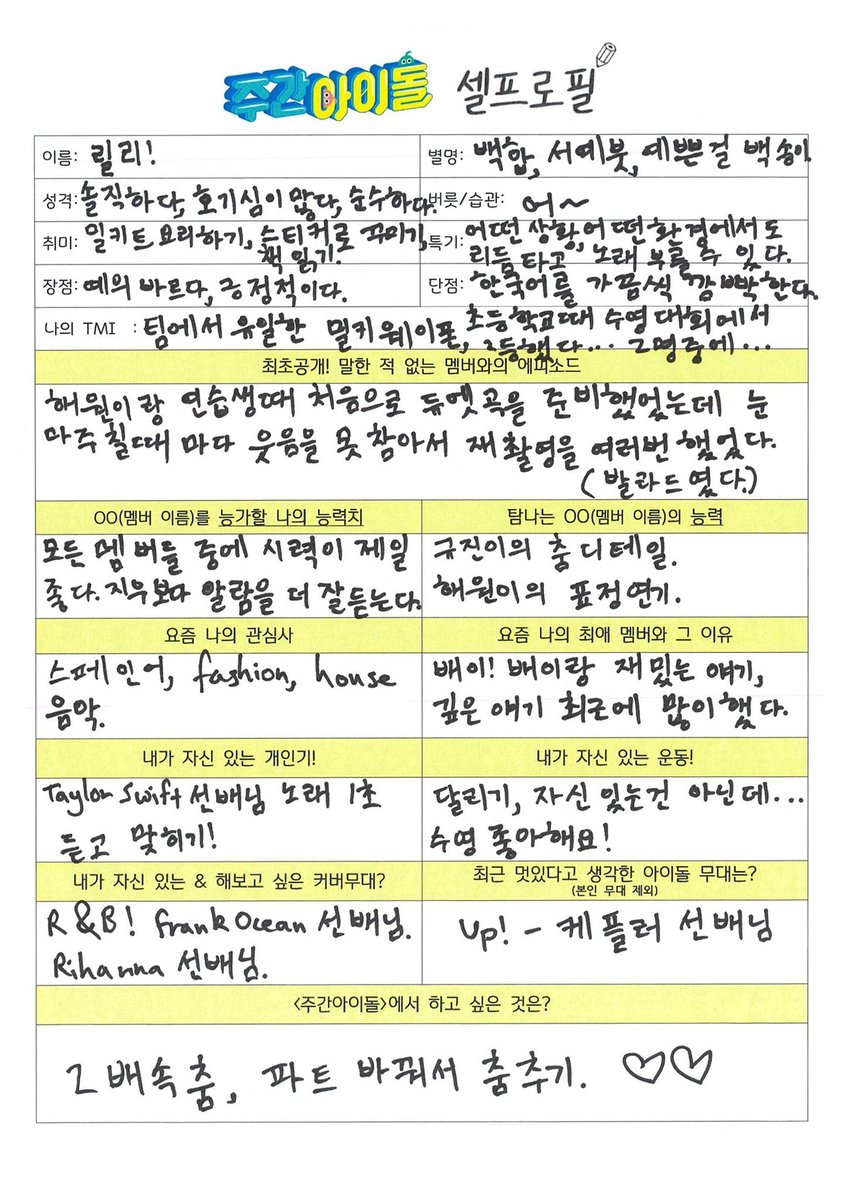 주간아이돌 셀프로필
이름: 릴리!
별명: 백합, 서예붓, 예쁜걸 백송이
성격: 솔직하다, 호기심이 많다, 순수하다.
버릇/습관: 어~
취미: 밀키트 요리하기, 스티커로 꾸미기,
책 읽기.
특기: 어떤 상황 어떤 환경에서도
리듬 타고, 노래 부를 수 있다.
장점: 예의 바르다, 긍정적이다.
단점: 한국어를 가끔씩 깜빡한다.
나의 TMI : 팀에서 유일한 밀키웨이폰, 초등학교때 수영대회에서
2등했다... 2명중에...
최초공개! 말한 적 없는 멤버와의 에피소드
해원이랑 연습생때 처음으로 듀엣곡을 준비했었는데 눈
마주칠때 마다 웃음을 못 참아서 재촬영을 여러번 했었다.
(발라드였다.)
OO(멤버 이름)를 능가할 나의 능력치
모든 멤버들 중에 시력이 제일
좋다. 지우보다 알람을 더 잘듣는다.
탐나는 OO(멤버 이름)의 능력
규진이의 춤 디테일.
해원이의 표정연기.
요즘 나의 관심사
스페인어, fashion, house
음악.
요즘 나의 최애 멤버와 그 이유
배이! 배이랑 재밌는 얘기,
깊은 얘기 최근에 많이했다.
내가 자신 있는 개인기!
Taylor Swift 선배님 노래 1초
듣고 맞히기!
내가 자신 있는 운동!
달리기, 자신 있는건 아닌데...
수영 좋아해요!
내가 자신 있는 & 해보고 싶은 커버무대?
R&B! Frank Ocean 선배님.
Rihanna 선배님.
최근 멋있다고 생각한 아이돌 무대는?
(본인 무대 제외)
Up! - 케플러 선배님
<주간아이돌>에서 하고 싶은 것은?
2배속 춤, 파트 바꿔서 춤추기. ♡♡